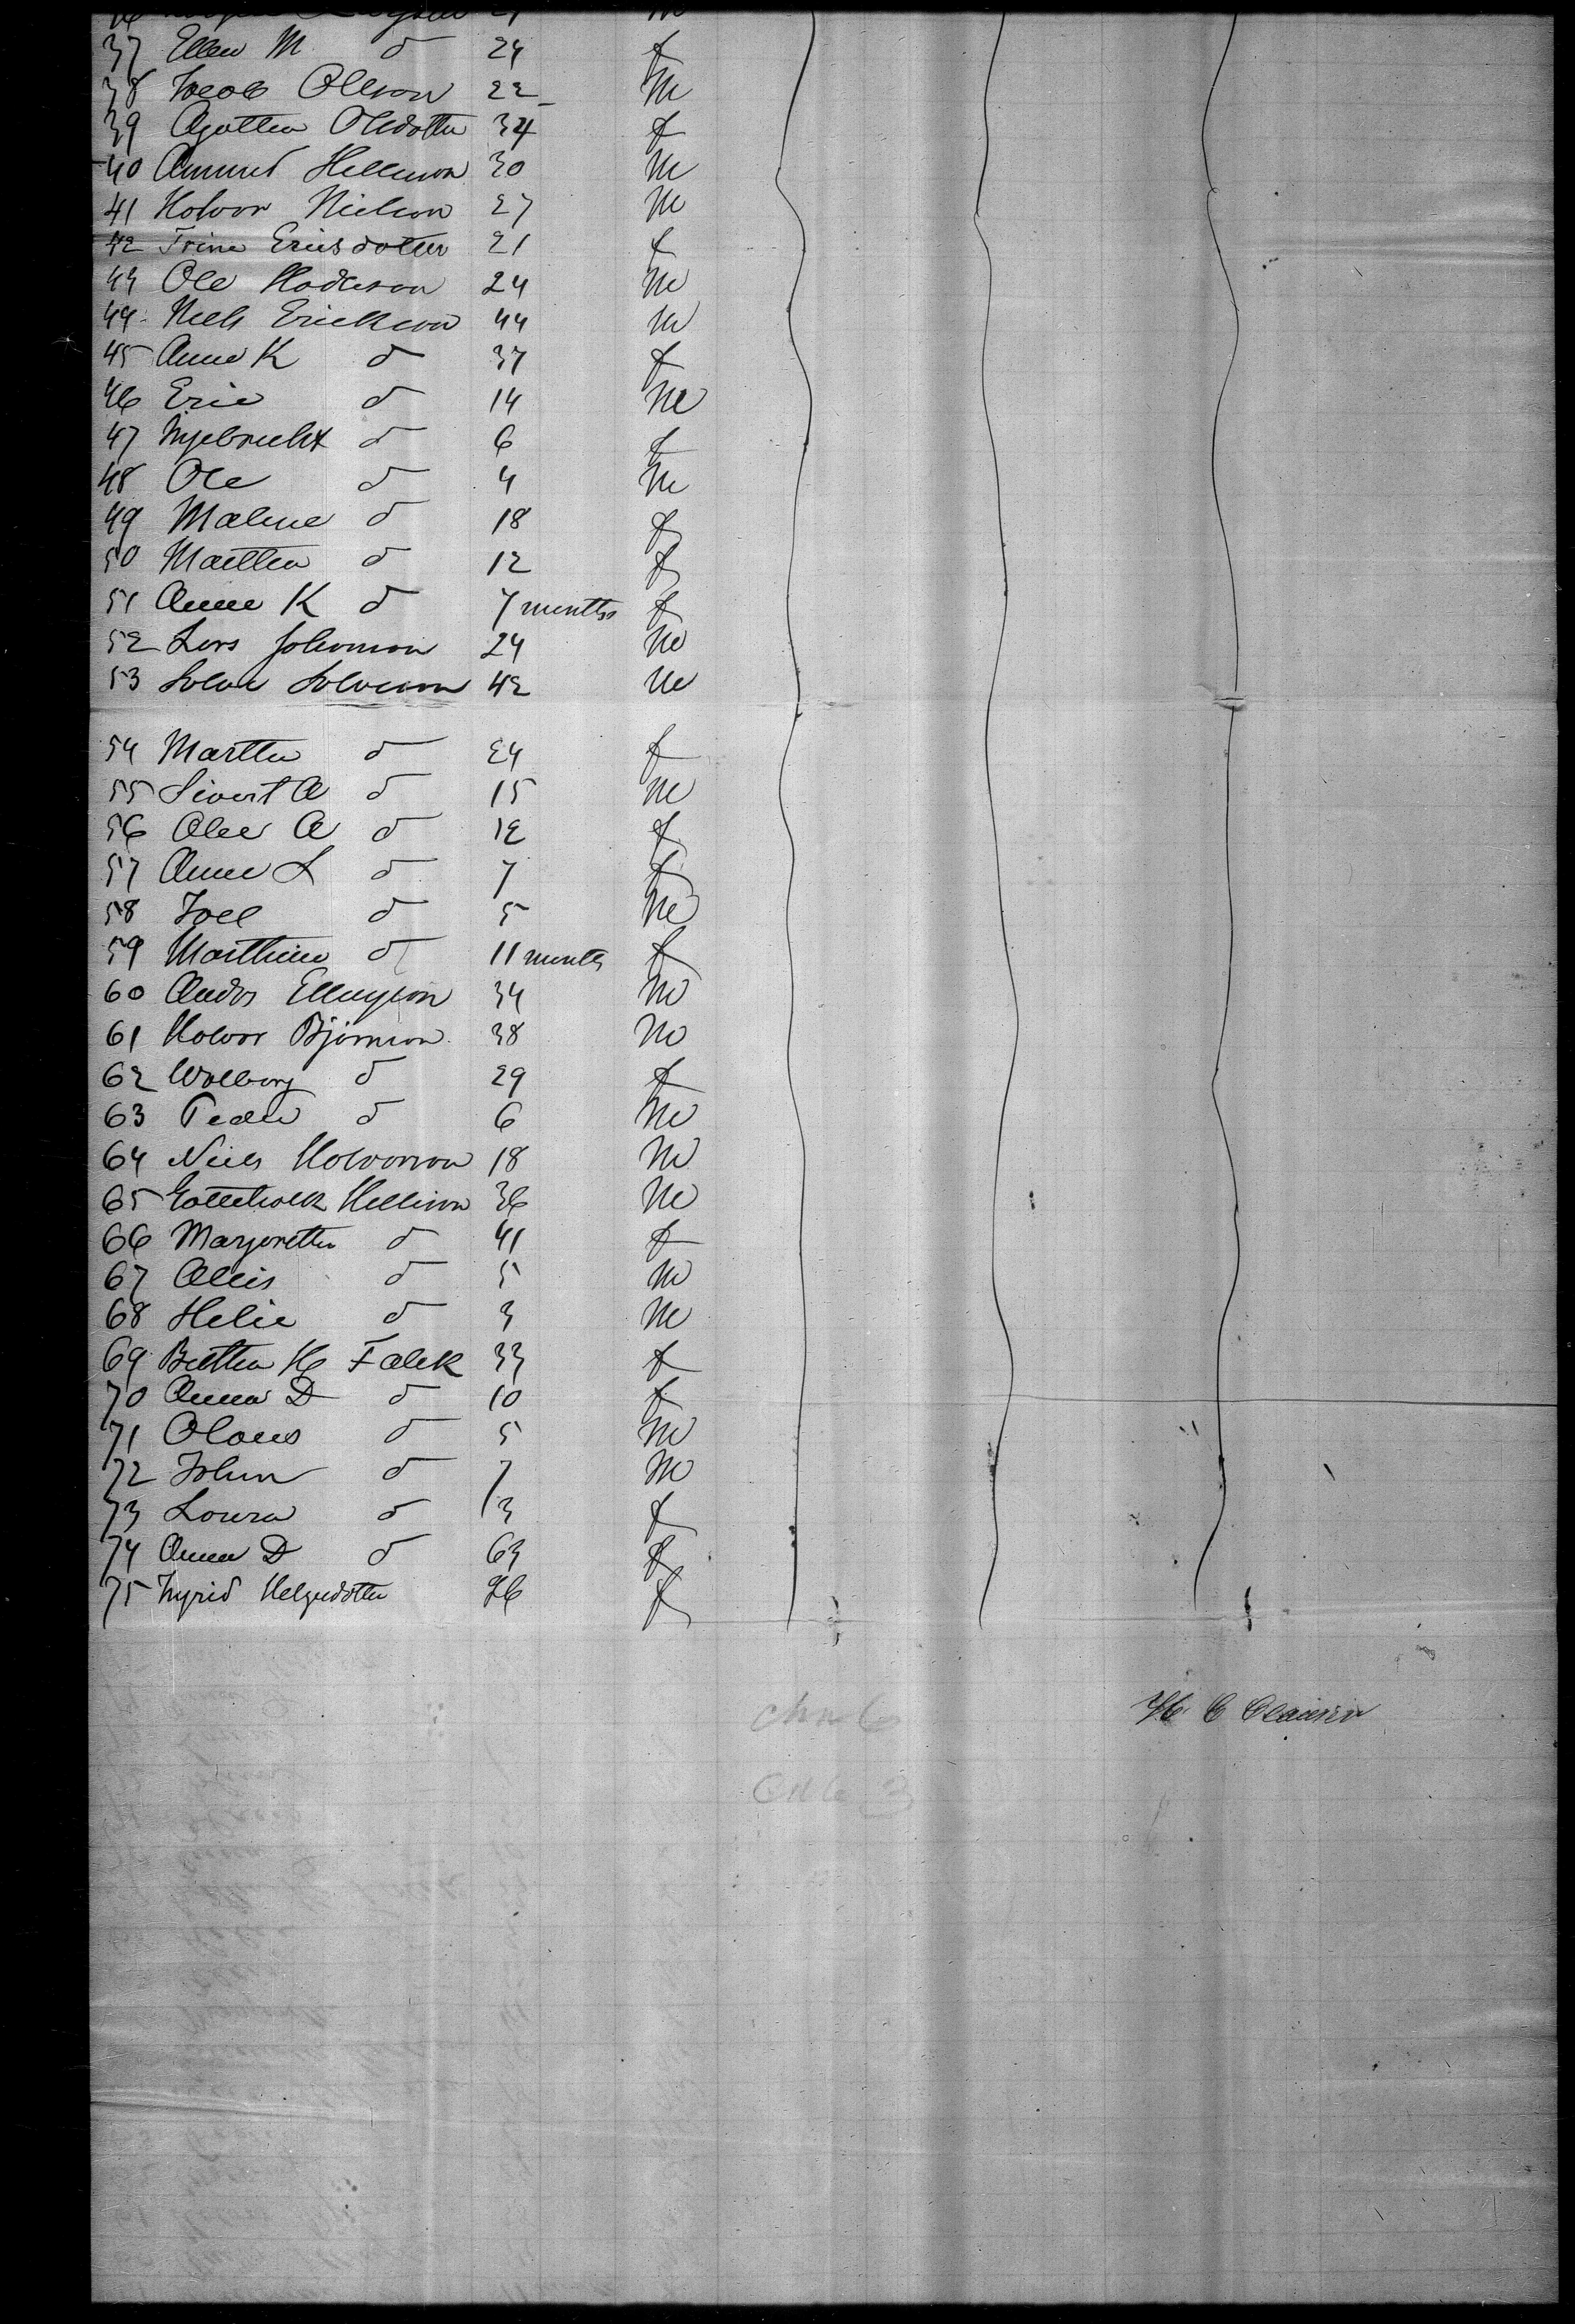 37 Ellen M d 24 f
38 Jacob Olleson 22 m
39 Agathea Olsdotter 34 f
40 Amund Helleson 30 m
41 Holvor Nielson 27 m
42 Trine Ericsdotter 21 f
43 Ole 24 m
44 Niels Erickson 44 m
45 Anne K d 37 f
46 Eric d 14 m
47 d 6 f
48 Ole d 4 m
49 Malene d 18 f
50 Marthea d 12 f
51 Anne K d 7 months f
52 Lars Johnson 24 m
53 42 m
54 Marthea d 24 f
55 Sivert A d 15 m
56 A d 12 f
57 Anne L d 7 f
58 d 5 m
59 d 11 months f
60 Andrs Ellingson 34 m
61 Holvor Bjornson 38 m
62 Wolborg d 29 f
63 Peder d 6 m
64 Niels Holvorson 18 m
65 Helleson 36 m
66 Margarethe d 41 f
67 Ollis d 5 m
68 Helie d 3 m
69 H Falck 33 f
70 Anna D d 10 f
71 Olaus d 5 m
72 John d 7 m
73 Loura d 3 f
74 Anna D d 63 f
75 Ingrid Helgedotter 26 f
H C Clausen